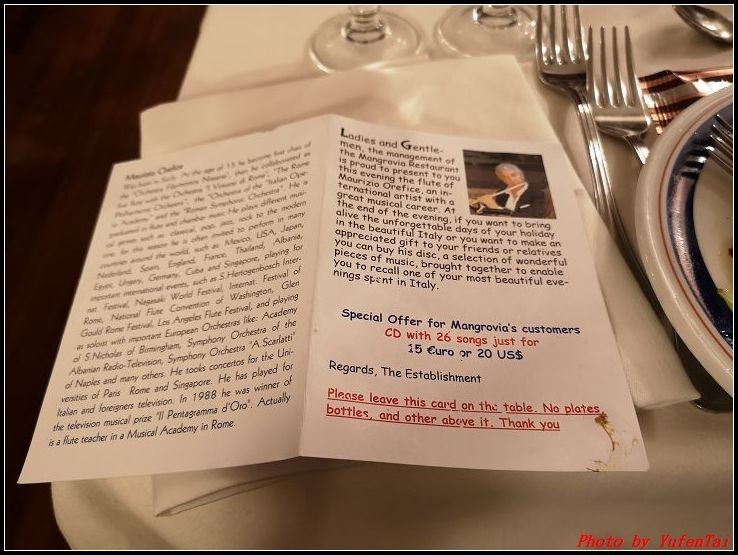 Maurizio Orefice
Was born in At the age of 15 he become first of
the "Orchestra then he collaborated as
first flute with the "I Virtuosi di Roma", "The Rome
Philharmonic Orchestra", the "Orchestra of the "Italian Ope-
ra Academy" and the "Roman Symphonic Orchestra". He is
graduated in flute and chamber music. He plays different musi-
cal genres such as: classical, pop, jazz, rock to the modern
one, for this reason he is often invited to perform in many
countries around the world, such as: Mexico, USA, Japan,
Nederland, Spain, England, France, Thailand, Albania,
Egypt, Ungary, Germany, Cuba and Singapore, playing for
important international events, such as S.Hertogenbosch Inter-
nat. Festival, Nagasaki World Festival, Internat. Festival of
Rome, National Flute Convention of Washington, Glen
Gould Rome Festival, Los Angeles Flute Festival, and playing
as soloist with important European Orchestras like: Academy
of S.Nicholas of Birmingham, Symphony Orchestra of the
Albanian Radio-Television, Symphony Orchestra "A.Scarlatti"
of Naples and many others. He tooks concertos for the Uni-
versities of Paris Rome and Singapore. He has played for
Italian and foreigners television. In 1988 he was winner of
the television musical prize "Il Pentagramma d'Oro". Actually
is a flute teacher in a Musical Academy in Rome.
Ladies and Gentle-
men, the management of
the Mangrovia Restaurant
is proud to present to you
this evening the flute of
Maurizio Orefice, an in-
ternational artist with a
great musical career. At
the end of the evening, if you want to bring
alive the unforgettable days of your holiday
in the beautiful Italy or you want to make an
appreciated gift to your friends or relatives
you can buy his disc, a selection of wonderful
pieces of music, brought together to enable
you to recall one of your most beautiful eve-
nings spent in Italy.
Special Offer for Mangrovia's customers
CD with 26 songs just for
15 €uro or 20 US$
Regards, The Establishment
Please leave this card on the table. No plates,
bottles, and other above it. Thank you
Photo by YufenTai